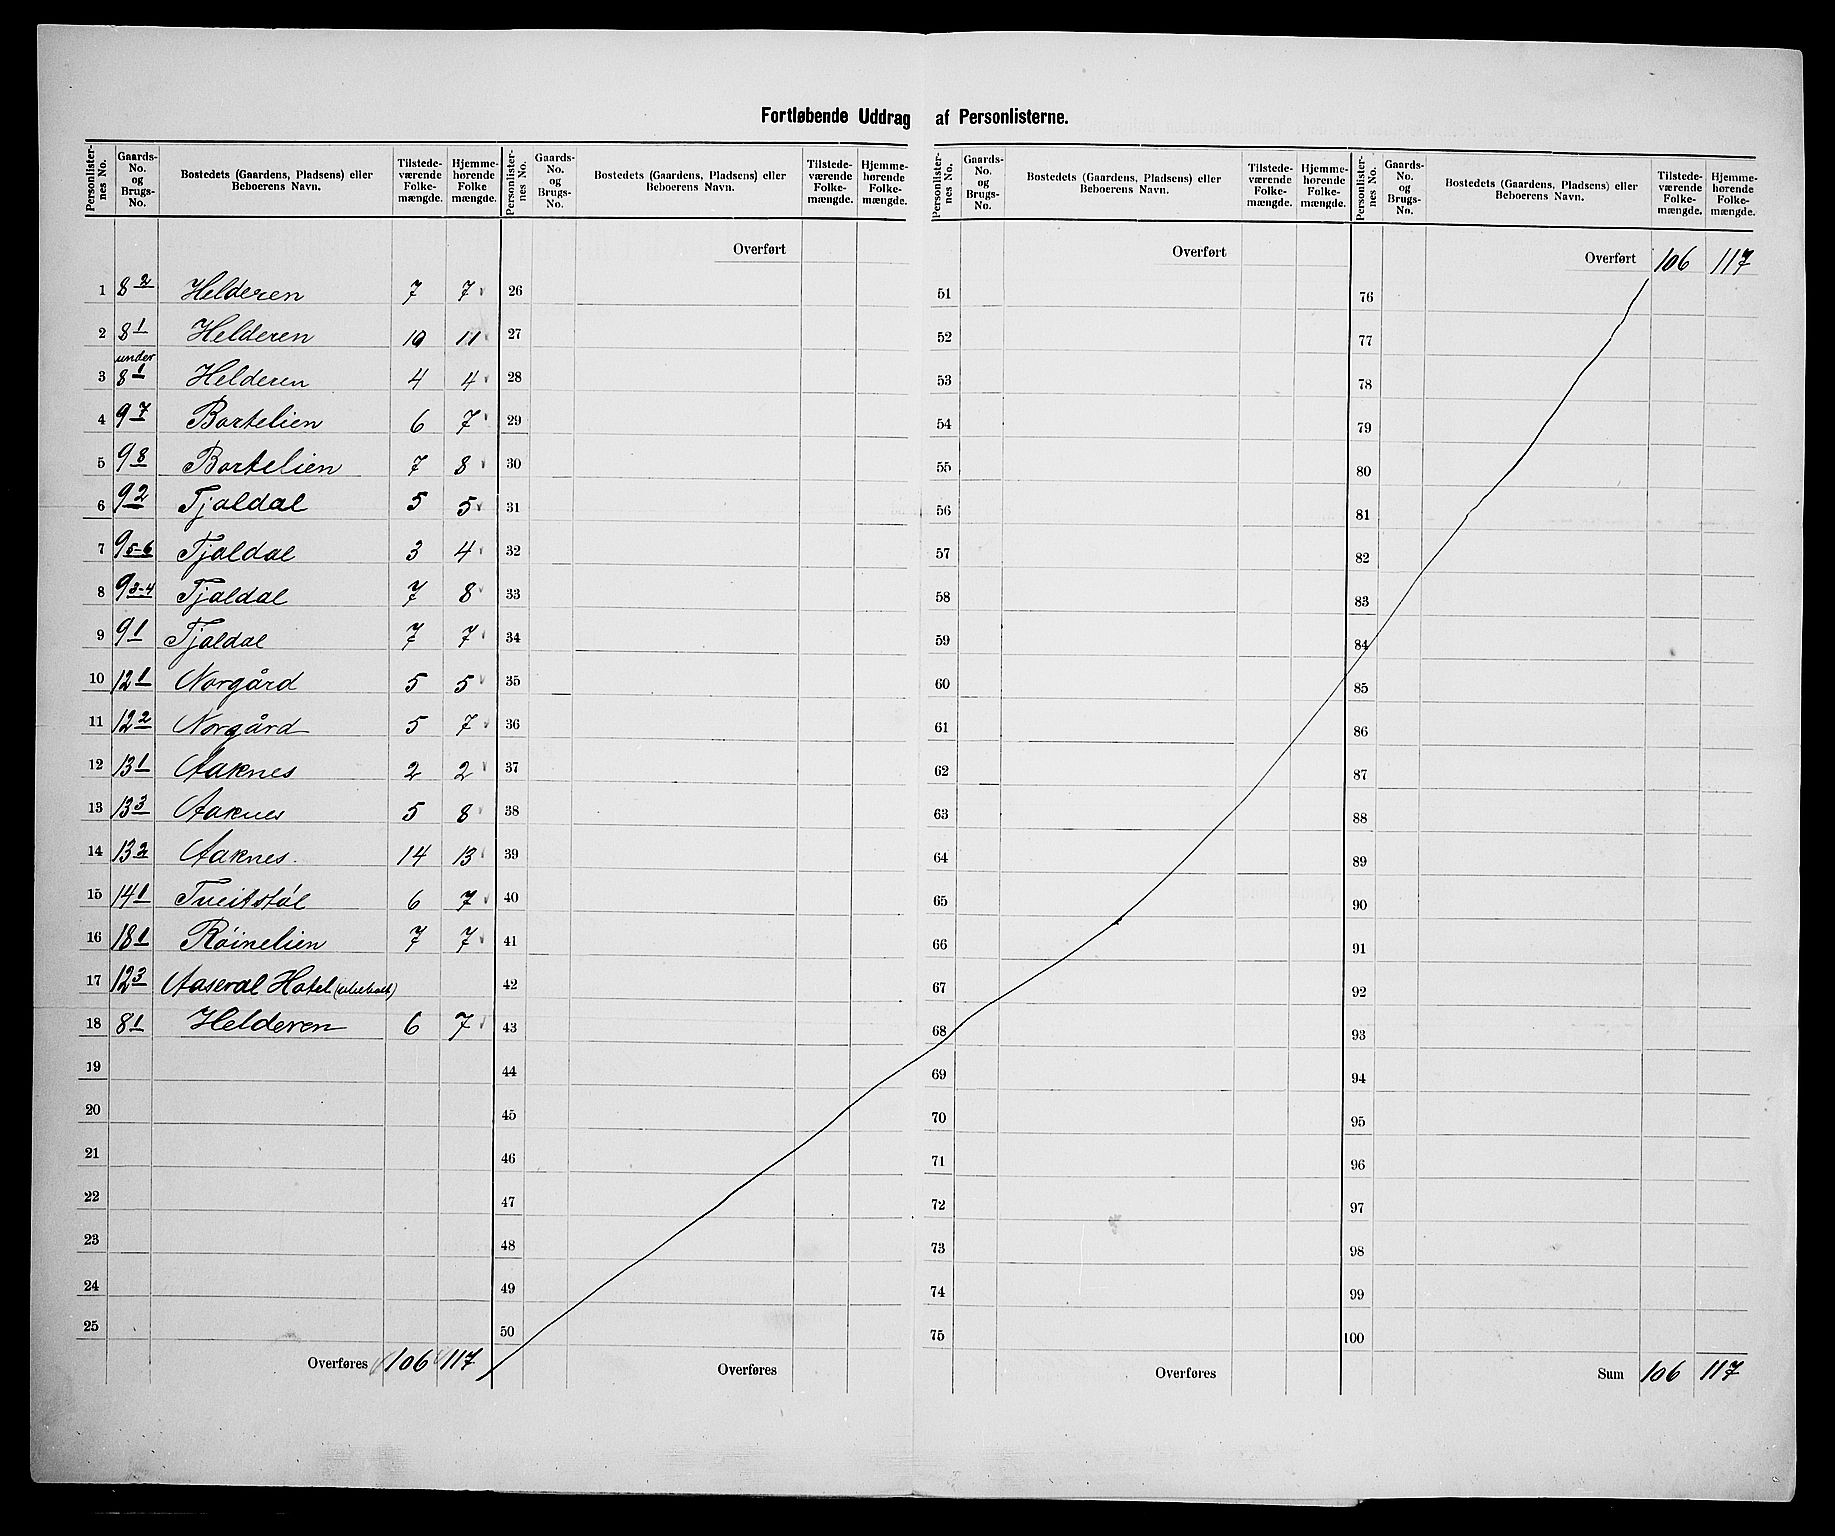 Fortløbende Uddrag af Personlisterne.
Personlister-nes No. Gaards-No. og Brugs-No. Bostedets (Gaardens, Pladsens) eller Beboerens Navn. Tilstede-værende Folke-mængde. Hjemme-hørende Folke mængde.
Personlister-nes No. Gaards-No. og Brugs-No. Bostedets (Gaardens, Pladsens) eller Beboerens Navn. Tilstede-værende Folke-mængde. Hjemme-hørende Folke-mængde.
Personlister-nes No. Gaards-No. og Brugs-No. Bostedets (Gaardens, Pladsens) eller Beboerens Navn. Tilstede-værende Folke-mængde. Hjemme-hørende Folke-mængde.
Personlister-nes No. Gaards-No. og Brugs-No. Bostedets (Gaardens, Pladsens) eller Beboerens Navn. Tilstede-værende Folke-mængde. Hjemme-hørende Folke-mængde.
Overført Overført Overført 106 117
1 8 2 Helderen 7 7 26 51 76
2 8 1 Helderen 10 11 27 52 77
3 under 8 1 Helderen 4 4 28 53 78
4 9 7 Bortelien 6 7 29 54 79
5 9 8 Bortelien 7 8 30 55 80
6 9 2 Tjaldal 5 5 31 56 81
7 9 5-6 Tjaldal 3 4 32 57 82
8 9 3-4 Tjaldal 7 8 33 58 83
9 9 1 Tjaldal 7 7 34 59 84
10 12 1 Norgård 5 5 35 60 85
11 12 2 Norgård 5 7 36 61 86
12 13 1 Aaknes 2 2 37 62 87
13 13 3 Aaknes 5 8 38 63 88
14 13 2 Aaknes. 14 13 39 64 89
15 14 1 Tveitstøl 6 7 40 65 90
16 18 1 Røinelien 7 7 41 66 91
17 12 3 Aaseral Hotel (ubebodt) 42 67 92
18 8 1 Helderen 6 7 43 68 93
19 44 69 94
20 45 70 95
21 46 71 96
22 47 72 97
23 48 73 98
24 49 74 99
25 50 75 100
Overføres 106 117 Overføres Overføres Sum 106 117